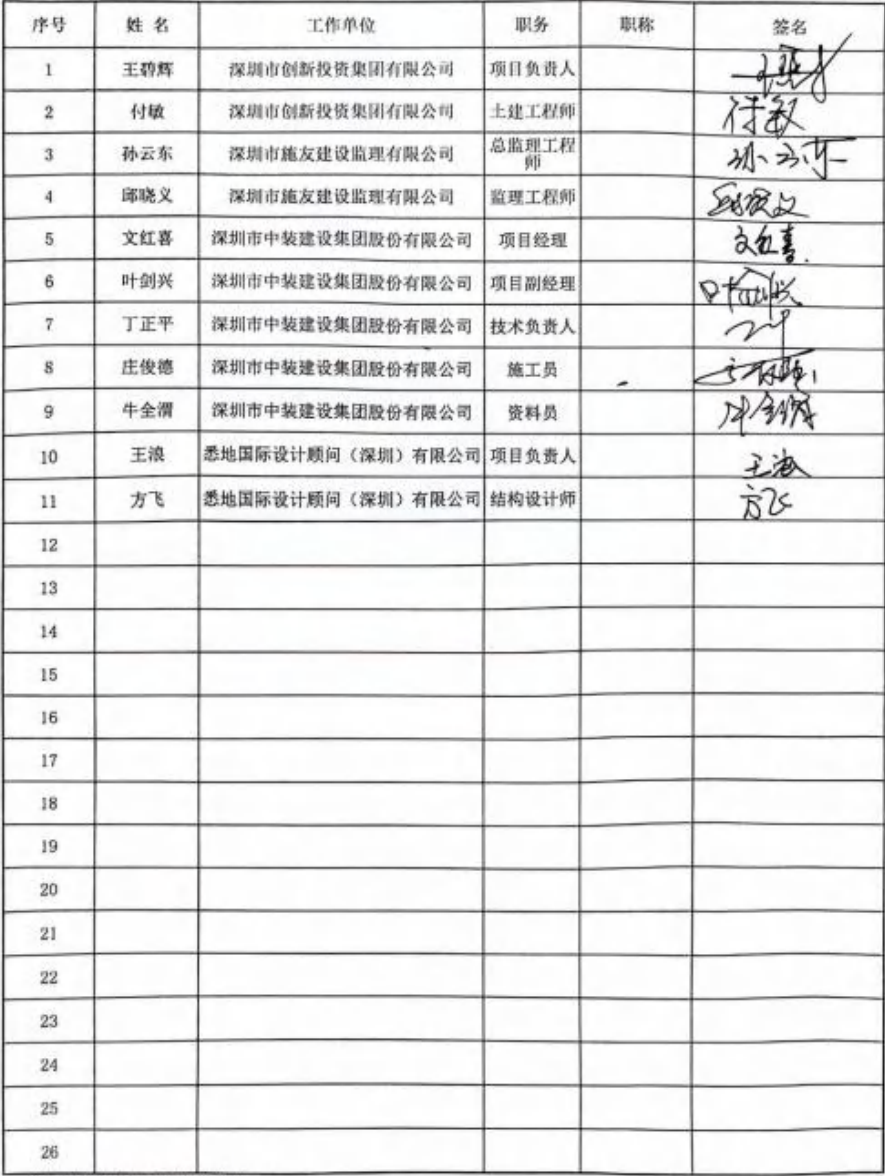 序号 姓 名 工作单位 职务 职称 签名
1 王碧辉 深圳市创新投资集团有限公司 项目负责人
2 付敏 深圳市创新投资集团有限公司 土建工程师 付敏
3 孙云东 深圳市施友建设监理有限公司 总监理工程师 孙云东
4 邱晓义 深圳市施友建设监理有限公司 监理工程师 邱晓义
5 文红喜 深圳市中装建设集团股份有限公司 项目经理 文红喜
6 叶剑兴 深圳市中装建设集团股份有限公司 项目副经理 叶剑兴
7 丁正平 深圳市中装建设集团股份有限公司 技术负责人
8 庄俊德 深圳市中装建设集团股份有限公司 施工员
9 牛全渭 深圳市中装建设集团股份有限公司 资料员
10 王浪 悉地国际设计顾问（深圳）有限公司 项目负责人 王浪
11 方飞 悉地国际设计顾问（深圳）有限公司 结构设计师 方飞
12
13
14
15
16
17
18
19
20
21
22
23
24
25
26